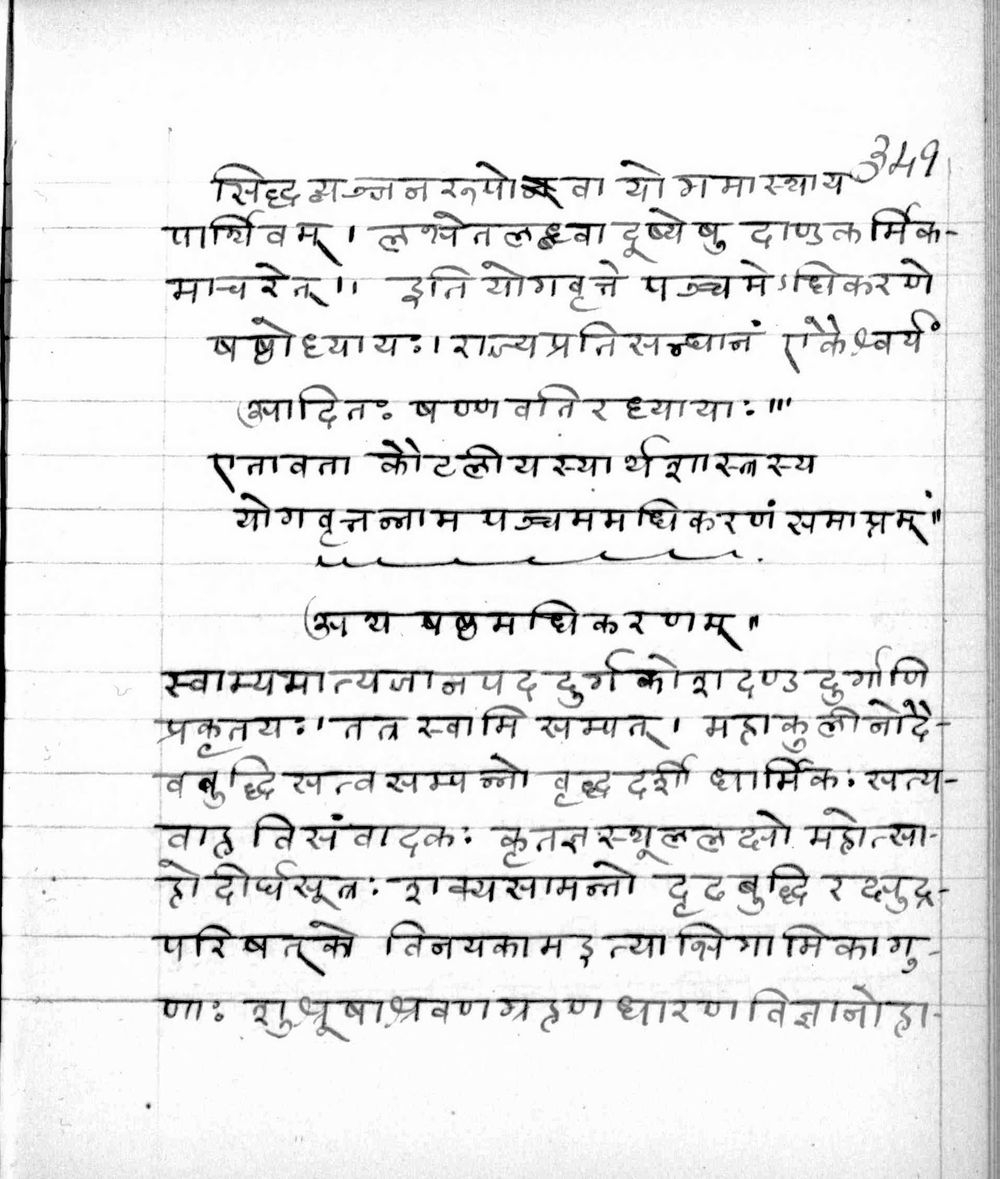 349
सिद्धव्यञ्जनरूपो वा योगमास्थाय
पार्थिवम् । लभेत लब्ध्वा दूष्येषु दाण्डकर्मिक-
माचरेत् ॥ इति योगवृत्ते पञ्चमेऽधिकरणे
षष्ठोध्यायः । राज्यप्रतिसन्धानं एकैश्वर्यं
आदितः षण्णवतिरध्यायाः ॥
एतावता कौटलीयस्यार्थशास्त्रस्य
योगवृत्तन्नाम पञ्चममधिकरणं समाप्तम् ॥
अथ षष्ठमधिकरणम् ॥
स्वाम्यमात्यजानपददुर्गकोशदण्डदुर्गाणि
प्रकृतयः । तत्र स्वामिसम्पत् । महाकुलीनोदै-
वबुद्धिसत्वसम्पन्नो वृद्धदर्शी धार्मिकः सत्य-
वाह विसंवादकः कृतज्ञस्थूललक्षो महोत्सा-
हो दीर्घसूत्रः शक्यसामन्तो दृढबुद्धिरक्षुद्र-
परिषत्को विनयकाम इत्याभिगामिका गु-
णाः शुश्रूषाश्रवणग्रहणधारणविज्ञानोहा-